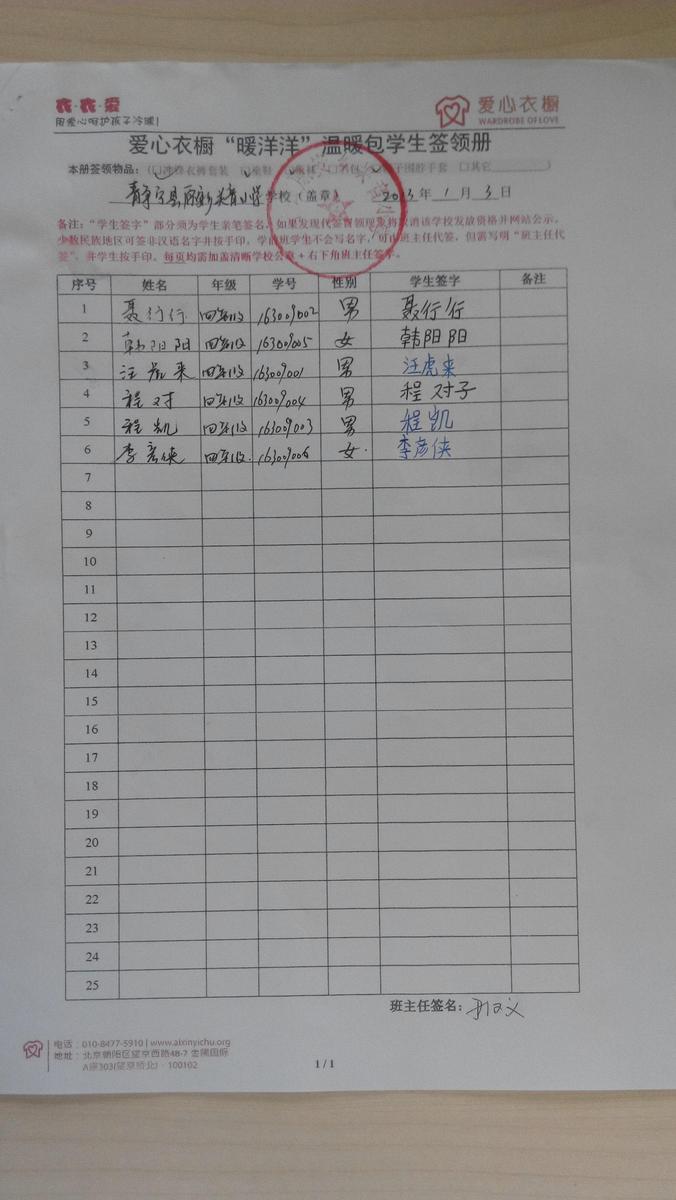 衣·衣·爱
用爱心呵护孩子冷暖!
爱心衣橱
WARDROBE OF LOVE
爱心衣橱“暖洋洋”温暖包学生签领册
本册签领物品:
围脖手套 □其它
学校(盖章) 2013年1月3日
备注:“学生签字”部分须为学生亲笔签名,如果发现代签冒领现象将取消该学校发放资格并网站公示。
少数民族地区可签非汉语名字并按手印。学前班学生不会写名字,可由班主任代签,但需写明“班主任代
签”,并学生按手印。每页均需加盖清晰学校公章+右下角班主任签字。
序号 姓名 年级 学号 性别 学生签字 备注
1 聂行行 四年级 163009002 男 聂行行
2 韩阳阳 四年级 163009005 女 韩阳阳
3 汪虎来 四年级 163009001 男 汪虎来
4 程对 四年级 163009004 男 程对子
5 程凯 四年级 163009003 男 程凯
6 李彦侠 四年级 163009006 女 李彦侠
7
8
9
10
11
12
13
14
15
16
17
18
19
20
21
22
23
24
25
班主任签名:
电话:010-8477-5910 | www.aixinyichu.org
地址:北京朝阳区望京西路48-7 金隅国际
A座303(望京桥北)·100102
1 / 1